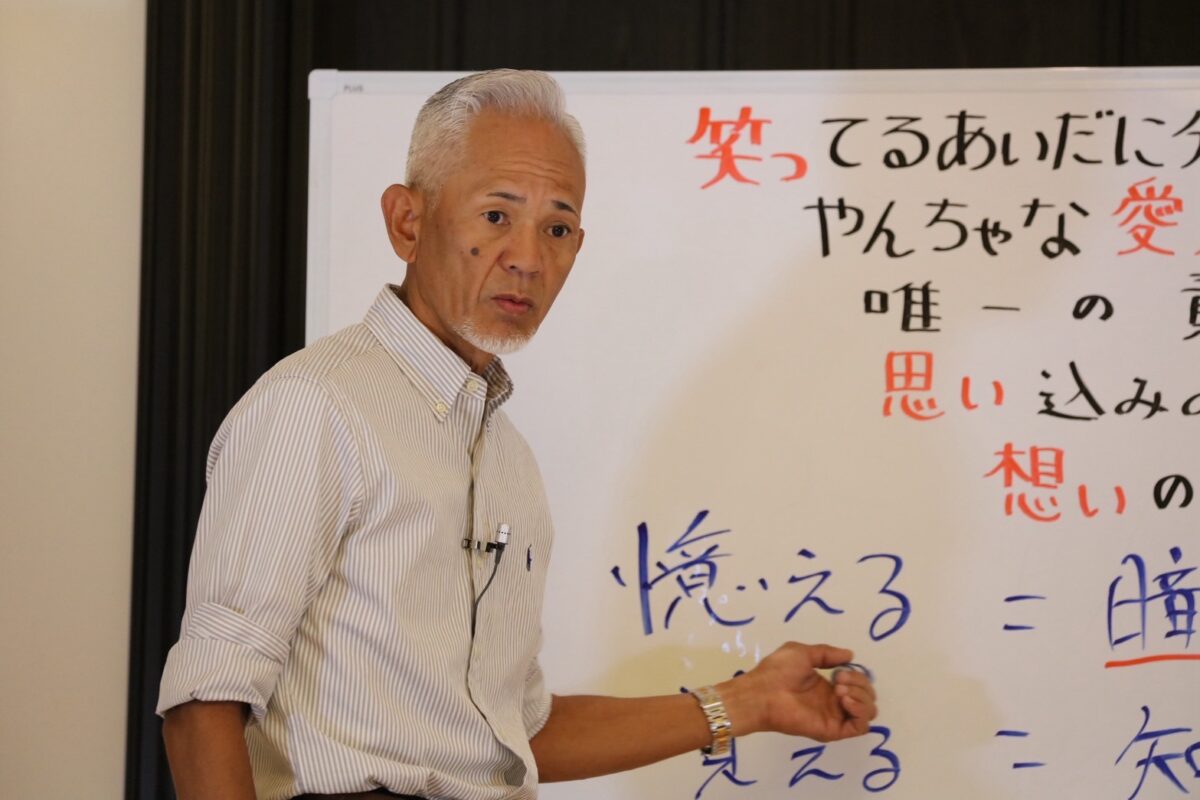 PLUS
笑ってるあいだに
やんちゃな愛
唯一の
思い込みの
想いの
憶える =
覚える = 知